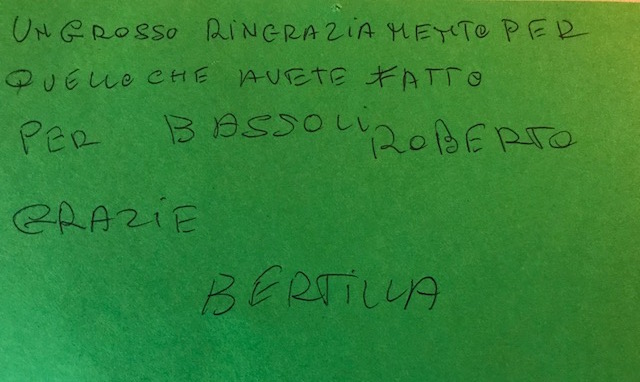 UN GROSSO RINGRAZIAMENTO PER
QUELLO CHE AVETE FATTO
PER BASSOLI ROBERTO
GRAZIE
BERTILLA